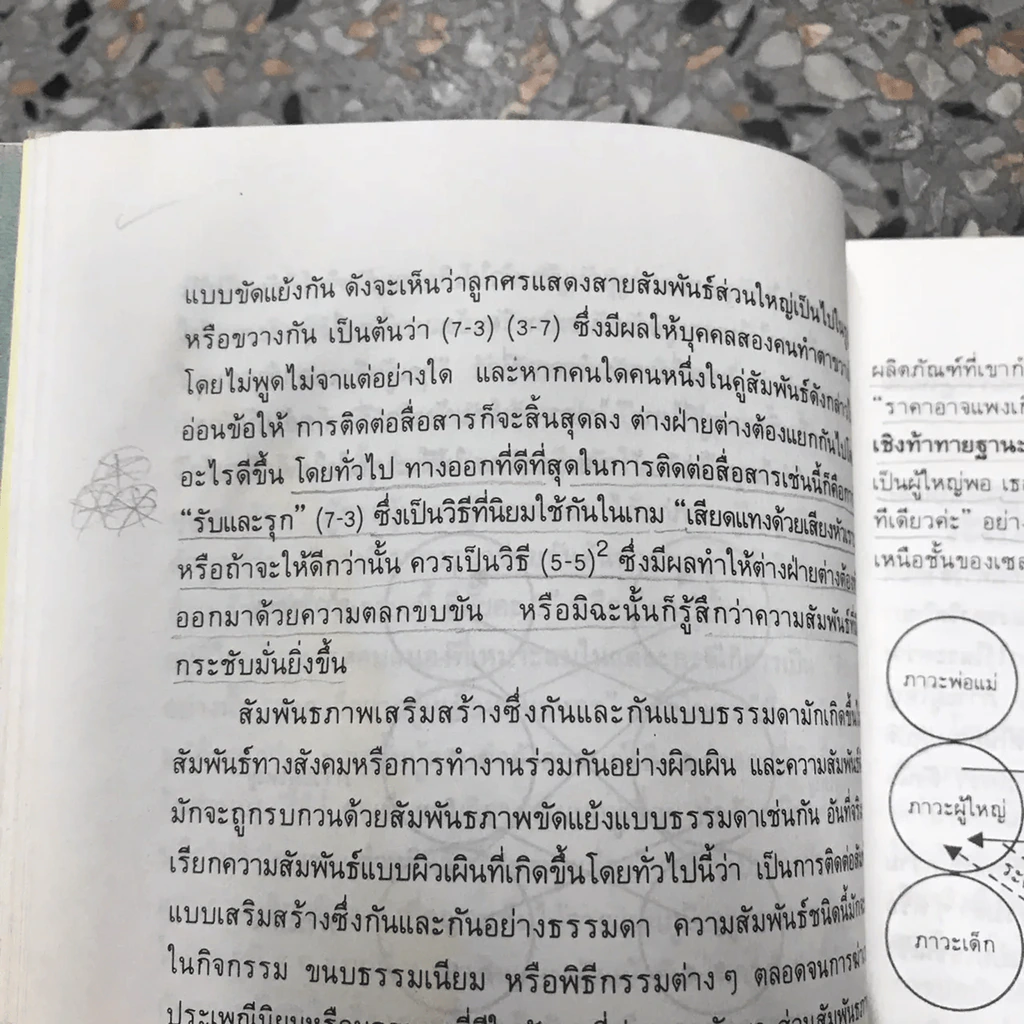 แบบขัดแย้งกัน ดังจะเห็นว่าลูกศรแสดงสายสัมพันธ์ส่วนใหญ่เป็นไปใน
หรือขวางกัน เป็นต้นว่า (7-3) (3-7) ซึ่งมีผลให้บุคคลสองคนทำตาขวาง
โดยไม่พูดไม่จาแต่อย่างใด และหากคนใดคนหนึ่งในคู่สัมพันธ์ดังกล่าว
อ่อนข้อให้ การติดต่อสื่อสารก็จะสิ้นสุดลง ต่างฝ่ายต่างต้องแยกกันไป
อะไรดีขึ้น โดยทั่วไป ทางออกที่ดีที่สุดในการติดต่อสื่อสารเช่นนี้ก็คือ
“รับและรุก” (7-3) ซึ่งเป็นวิธีที่นิยมใช้กันในเกม “เสียดแทงด้วยเสียง
หรือถ้าจะให้ดีกว่านั้น ควรเป็นวิธี (5-5)² ซึ่งมีผลทำให้ต่างฝ่ายต่าง
ออกมาด้วยความตลกขบขัน หรือมิฉะนั้นก็รู้สึกว่าความสัมพันธ์
กระชับมั่นยิ่งขึ้น
สัมพันธภาพเสริมสร้างซึ่งกันและกันแบบธรรมดามักเกิดขึ้น
สัมพันธ์ทางสังคมหรือการทำงานร่วมกันอย่างผิวเผิน และความสัมพันธ์
มักจะถูกรบกวนด้วยสัมพันธภาพขัดแย้งแบบธรรมดาเช่นกัน อันที่จริง
เรียกความสัมพันธ์แบบผิวเผินที่เกิดขึ้นโดยทั่วไปนี้ว่า เป็นการติดต่อ
แบบเสริมสร้างซึ่งกันและกันอย่างธรรมดา ความสัมพันธ์ชนิดนี้มัก
ในกิจกรรม ขนบธรรมเนียม หรือพิธีกรรมต่าง ๆ ตลอดจนการ
ผลิตภัณฑ์ที่เขา
“ราคาอาจแพง
เชิงท้าทายฐานะ
เป็นผู้ใหญ่พอ
ทีเดียวค่ะ” อย่าง
เหนือชั้นของ
ภาวะพ่อแม่
ภาวะผู้ใหญ่
ภาวะเด็ก